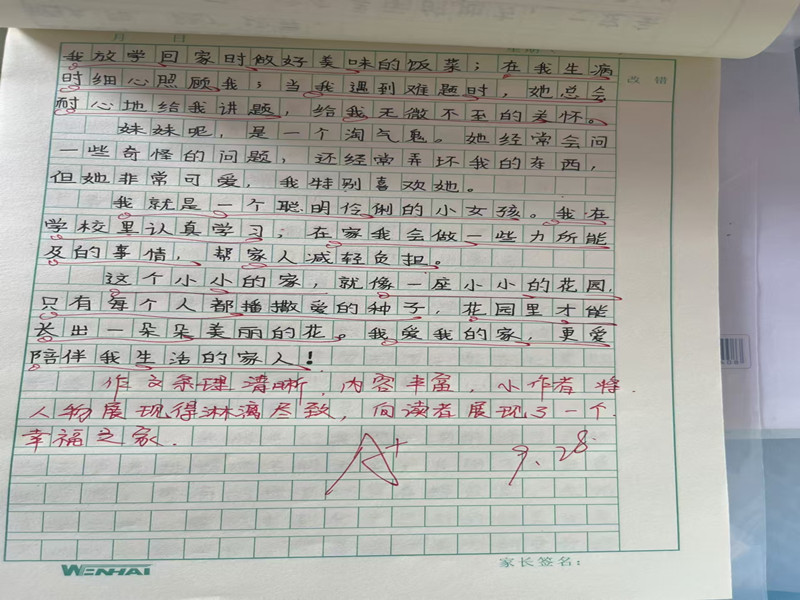 月 日
我放学回家时做好美味的饭菜；在我生病
时细心照顾我；当我遇到难题时，她总会
耐心地给我讲题，给我无微不至的关怀。
妹妹呢，是一个淘气鬼。她经常会问
一些奇怪的问题，还经常弄坏我的东西，
但她非常可爱，我特别喜欢她。
我就是一个聪明伶俐的小女孩。我在
学校里认真学习；在家我会做一些力所能
及的事情，帮家人减轻负担。
这个小小的家，就像一座小小的花园，
只有每个人都播撒爱的种子，花园里才能
长出一朵朵美丽的花。我爱我的家，更爱
陪伴我生活的家人！
作文条理清晰，内容丰富，小作者将
人物展现得淋漓尽致，向读者展现了一个
幸福之家.
A+ 9.28.
改 错
WENHAI
家长签名：